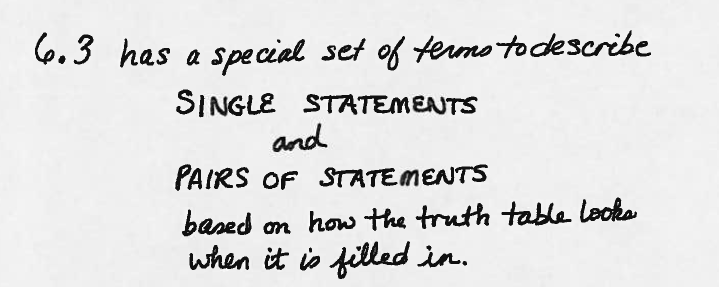 6.3 has a special set of terms to describe
SINGLE STATEMENTS
and
PAIRS OF STATEMENTS
based on how the truth table looks
when it is filled in.